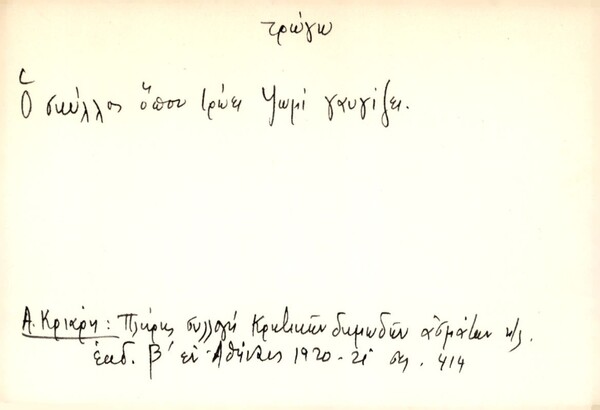 τρώγω
Ὁ σκύλλος ὅπου τρώει ψωμί γαυγίζει.
Α. Κριάρη: Πλήρης συλλογή Κρητικῶν δημωδῶν ᾀσμάτων κ/λ.
ἐκδ. β' ἐν Ἀθήναις 1920-21 σελ. 414